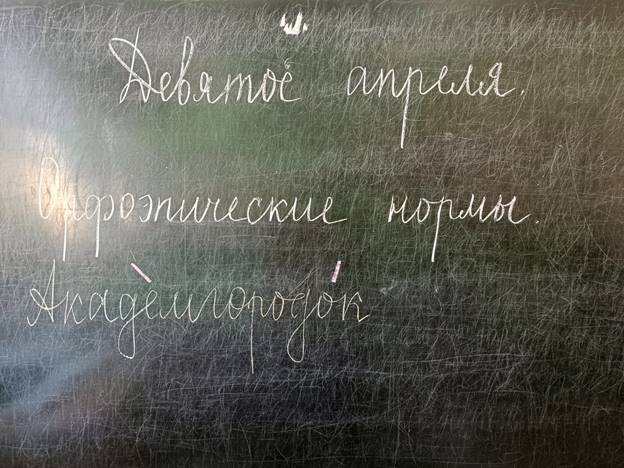 Девятое апреля.
Орфоэпические нормы.
Акадѐмгородо́к